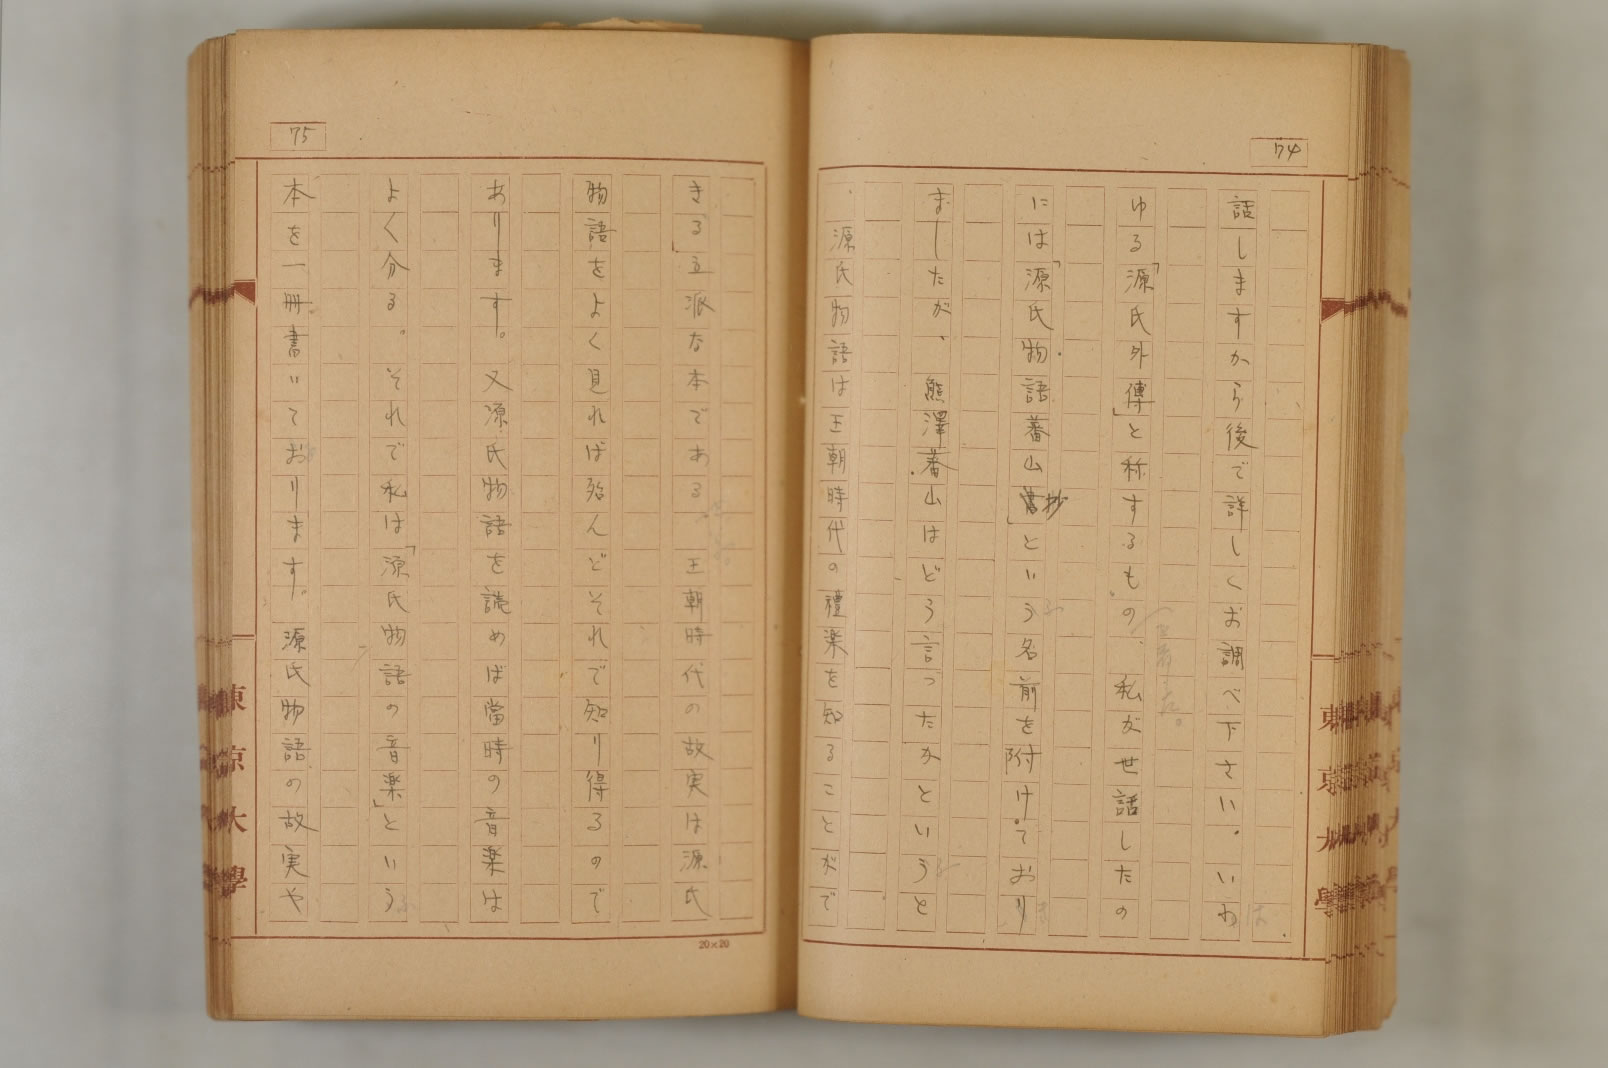 74
話しますから後で詳しくお調べ下さい。いわ
ゆる「源氏外傳」と称するもの、私が世話したの
には「源氏物語蕃山抄」という名前を附けており
ましたが、熊澤蕃山はどう言つたかというと
源氏物語は王朝時代の禮楽を知ることがで
75
きる立派な本である 王朝時代の故実は源氏
物語をよく見れば殆んどそれで知り得るので
あります。又源氏物語を読めば當時の音楽は
よく分る。それで私は「源氏物語の音楽」という
本を一冊書いております。源氏物語の故実や
20×20
東京大學